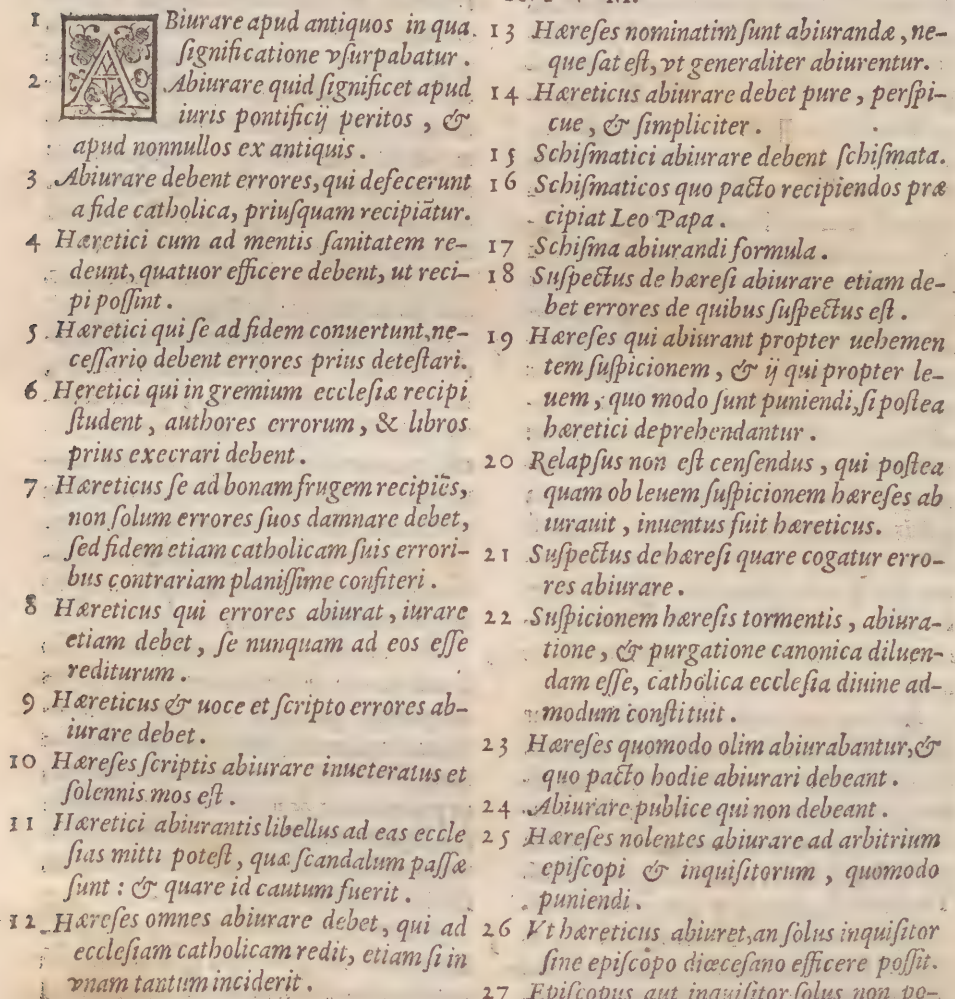 1. ABiurare apud antiquos in qua
ſignificatione vſurpabatur.
2 Abiurare quid ſignificet apud
iuris pontificij peritos, &
apud nonnullos ex antiquis.
3 Abiurare debent errores, qui defecerunt
a fide catholica, priuſquam recipiãtur.
4 Hæretici cum ad mentis ſanitatem re-
deunt, quatuor efficere debent, ut reci-
pi poſſint.
5 Hæretici qui ſe ad fidem conuertunt, ne-
ceſſario debent errores prius deteſtari.
6 Heretici qui in gremium eccleſiæ recipi
ſtudent, authores errorum, & libros
prius execrari debent.
7 Hæreticus ſe ad bonam frugem recipiẽs,
non ſolum errores ſuos damnare debet,
ſed fidem etiam catholicam ſuis errori-
bus contrariam planiſſime confiteri.
8 Hæreticus qui errores abiurat, iurare
etiam debet, ſe nunquam ad eos eſſe
rediturum.
9 Hæreticus & uoce et ſcripto errores ab-
iurare debet.
10 Hæreſes ſcriptis abiurare inueteratus et
ſolennis mos eſt.
11 Hæretici abiurantis libellus ad eas eccle
ſias mitti poteſt, quæ ſcandalum paſſæ
ſunt: & quare id cautum fuerit.
12 Hæreſes omnes abiurare debet, qui ad
eccleſiam catholicam redit, etiam ſi in
vnam tantum inciderit.
13 Hæreſes nominatim ſunt abiurandæ, ne-
que ſat eſt, vt generaliter abiurentur.
14 Hæreticus abiurare debet pure, perſpi-
cue, & ſimpliciter.
15 Schiſmatici abiurare debent ſchiſmata.
16 Schiſmaticos quo pacto recipiendos præ
cipiat Leo Papa.
17 Schiſma abiurandi formula.
18 Suſpectus de hæreſi abiurare etiam de-
bet errores de quibus ſuſpectus eſt.
19 Hæreſes qui abiurant propter uehemen
tem ſuſpicionem, & ij qui propter le-
uem, quo modo ſunt puniendi, ſi poſtea
hæretici deprehendantur.
20 Relapſus non eſt cenſendus, qui poſtea
quam ob leuem ſuſpicionem hæreſes ab
iurauit, inuentus fuit hæreticus.
21 Suſpectus de hæreſi quare cogatur erro-
res abiurare.
22 Suſpicionem hæreſis tormentis, abiura-
tione, & purgatione canonica diluen-
dam eſſe, catholica eccleſia diuine ad-
modum conſtituit.
23 Hæreſes quomodo olim abiurabantur, &
quo pacto hodie abiurari debeant.
24 Abiurare publice qui non debeant.
25 Hæreſes nolentes abiurare ad arbitrium
epiſcopi & inquiſitorum, quomodo
puniendi.
26 Vt hæreticus abiuret, an ſolus inquiſitor
ſine epiſcopo diœceſano efficere poſſit.
27 Epiſcopus aut inquiſitor ſolus non po-